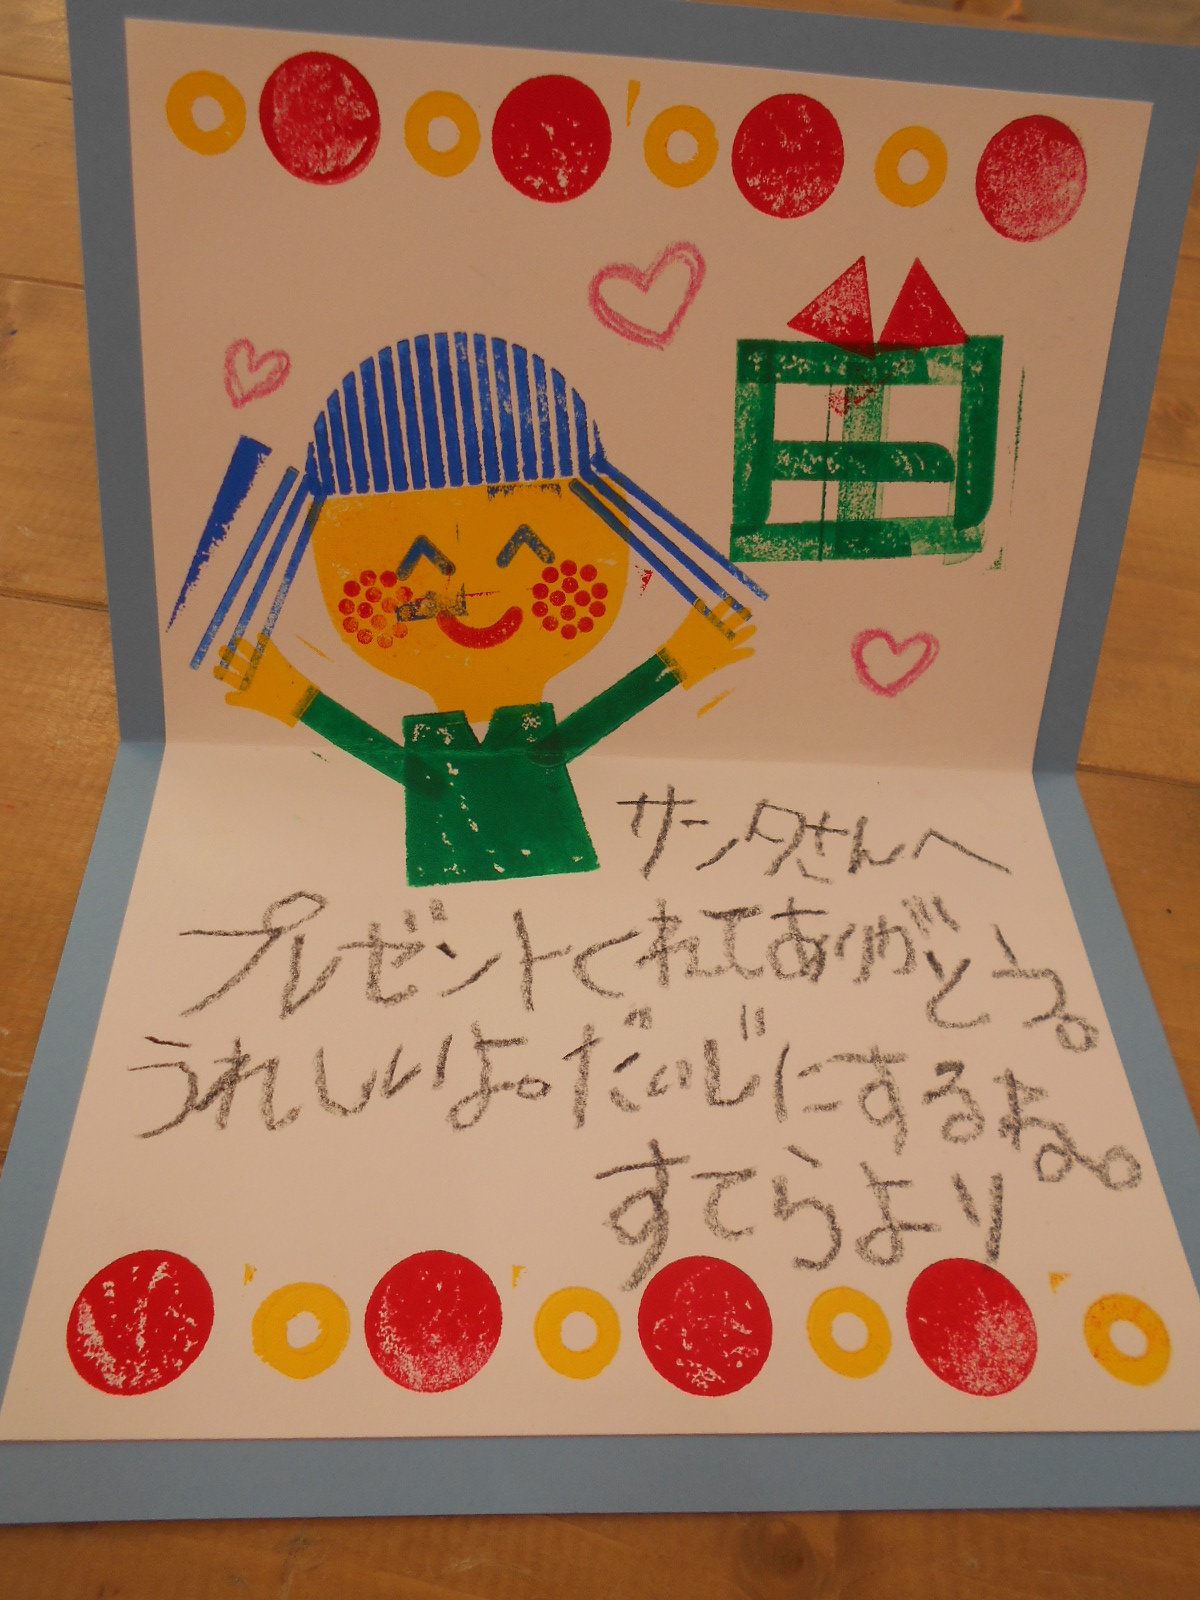 サンタさんへ
プレゼントくれてありがとう。
うれしいよ。だいじにするね。
すてらより